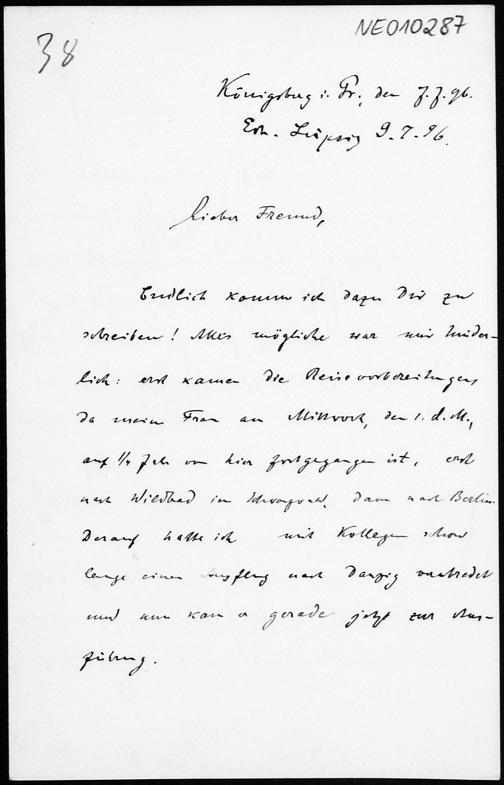 38
NE010287
Königsberg i. Pr., den 7.7.96.
Erh. Leipzig 9.7.96.
Lieber Freund,
Endlich komme ich dazu Dir zu
schreiben! Alles mögliche war mir hinder-
lich: erst kamen die Reisevorbereitungen,
da meine Frau am Mittwoch, den 1. d. M.,
auf 1/4 Jahr von hier fortgegangen ist, erst
nach Wildbad im Schwarzwald, dann nach Berlin.
Darauf hatte ich mit Kollegen schon
lange einen Ausflug nach Danzig verabredet
und nun kam er gerade jetzt zur Aus-
führung.